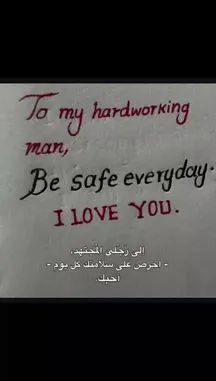 To my hardworking
man,
Be safe everyday.
I LOVE YOU.
إلى رَجُلي المُجتهد،
- احرص على سلامتك كل يوم -
احبك.